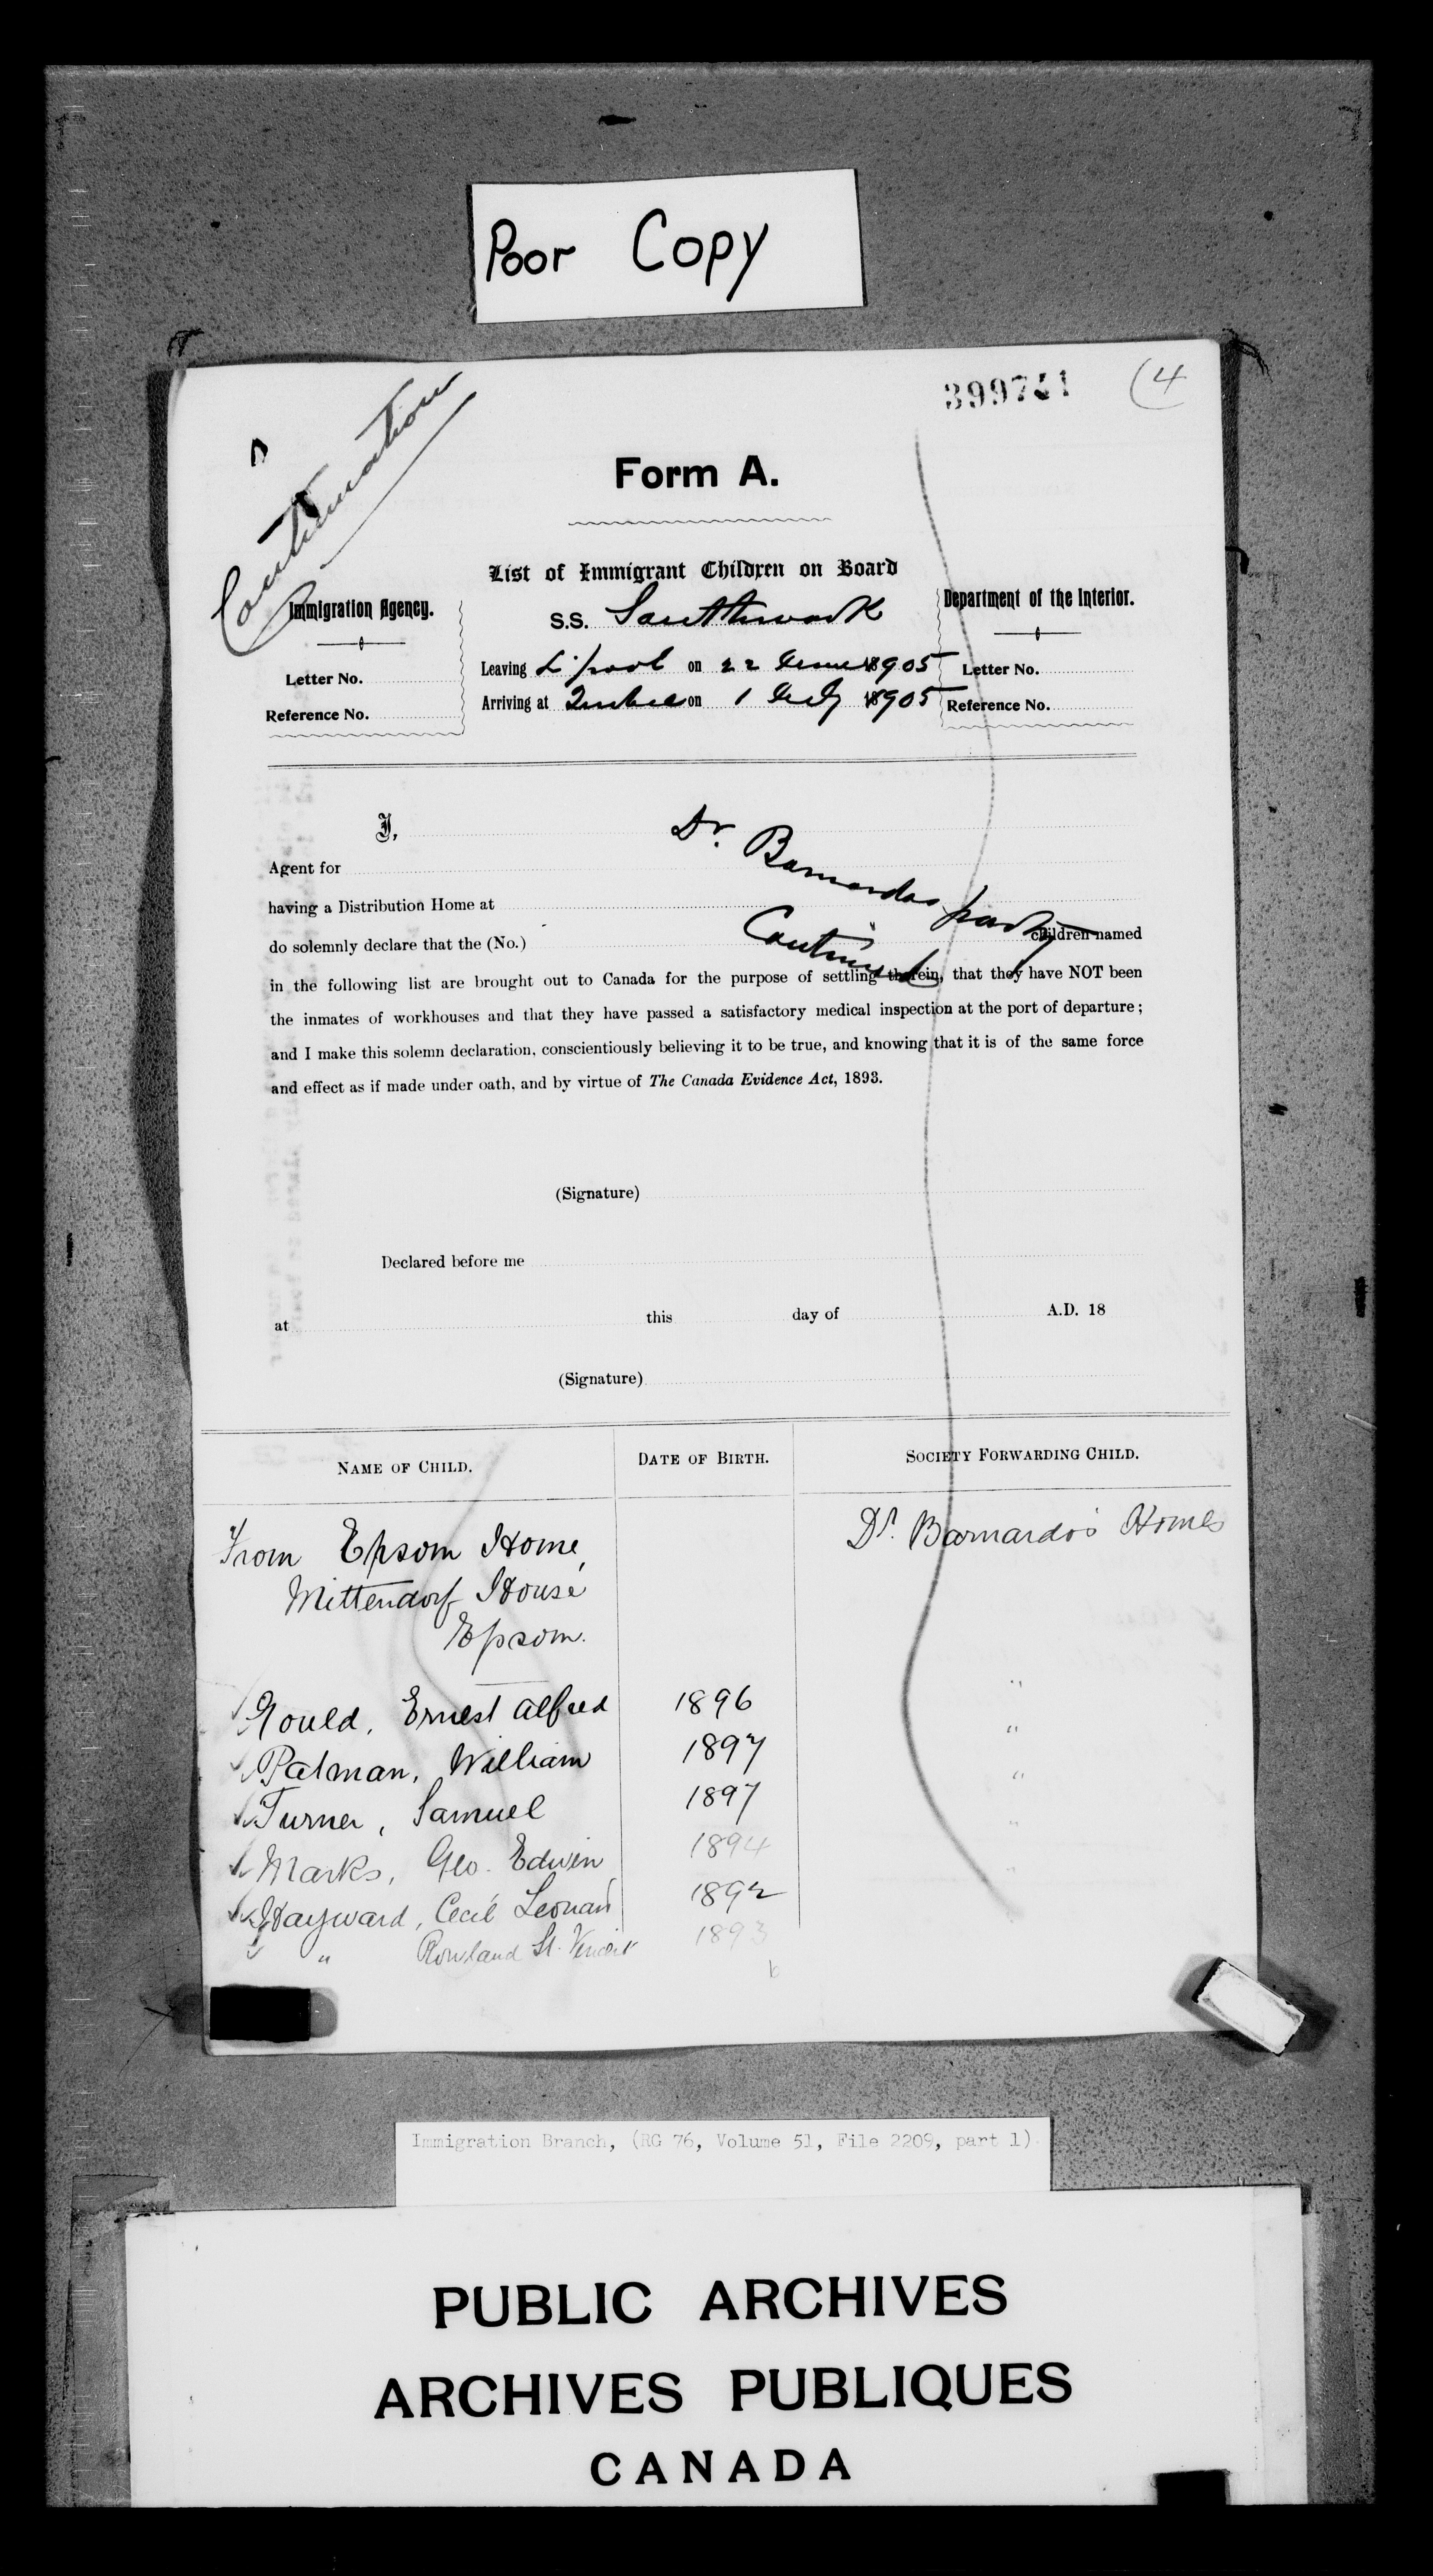 Poor Copy
399741
(4
Continuation
Form A.
List of Immigrant Children on Board
Immigration Agency.
Department of the Interior.
S.S. Southwark
Letter No.
Leaving L'pool on 22 June 18905
Letter No.
Reference No.
Arriving at Quebec on 1 July 18905
Reference No.
I,
Dr. Barnardos party
Agent for
having a Distribution Home at
Continued
do solemnly declare that the (No.) children named
in the following list are brought out to Canada for the purpose of settling therein, that they have NOT been
the inmates of workhouses and that they have passed a satisfactory medical inspection at the port of departure;
and I make this solemn declaration, conscientiously believing it to be true, and knowing that it is of the same force
and effect as if made under oath, and by virtue of The Canada Evidence Act, 1893.
(Signature)
Declared before me
at this day of A.D. 18
(Signature)
NAME OF CHILD. DATE OF BIRTH. SOCIETY FORWARDING CHILD.
From Epsom Home, Dr. Barnardo's Homes
Mittendorf House
Epsom.
Gould, Ernest Alfred 1896 "
Patman, William 1897 "
Turner, Samuel 1897 "
Marks, Geo. Edwin 1894 "
Hayward, Cecil Leonard 1892 "
" Rowland St. Vincent 1893
Immigration Branch, (RG 76, Volume 51, File 2209, part 1)
PUBLIC ARCHIVES
ARCHIVES PUBLIQUES
CANADA